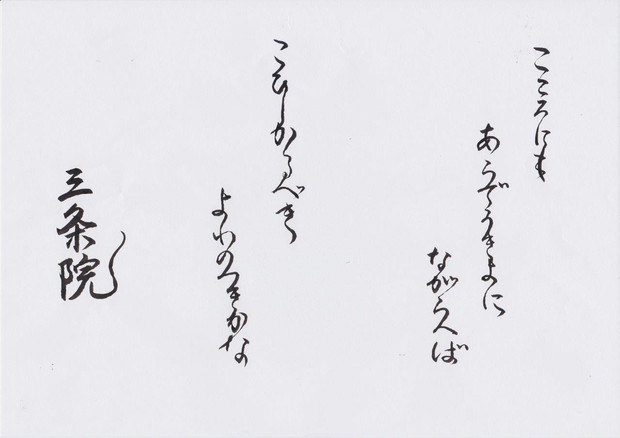 こころにも
あらでうきよに
ながらへば
こひしかるべき
よはのつきかな
三条院